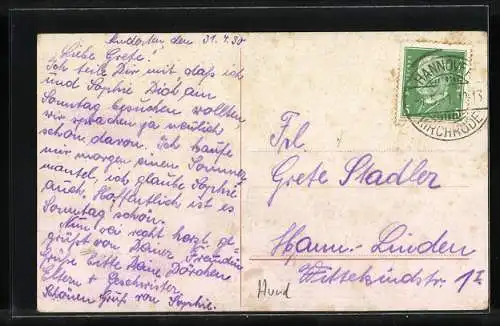 den 31.4.30
Liebe Grete!
Ich teile Dir mit, daß ich
und Sophie Dich am
Sonntag besuchen wollten,
wir sprachen ja neulich
schon davon. Ich kaufe
mir morgen einen Sommer
mantel, ich glaube Sophie
auch. Hoffentlich ist es
Sonntag schön.
Nun sei recht herzl. ge
grüßt von Deiner Freundin
Grüße bitte Deine Dörchen
Eltern + Geschwister
Schönen Gruß von Sophie.
HANNOVER
KIRCHRODE
Frl.
Grete Stadler
Hann.-Linden
Wittekindstr. 12
Hund